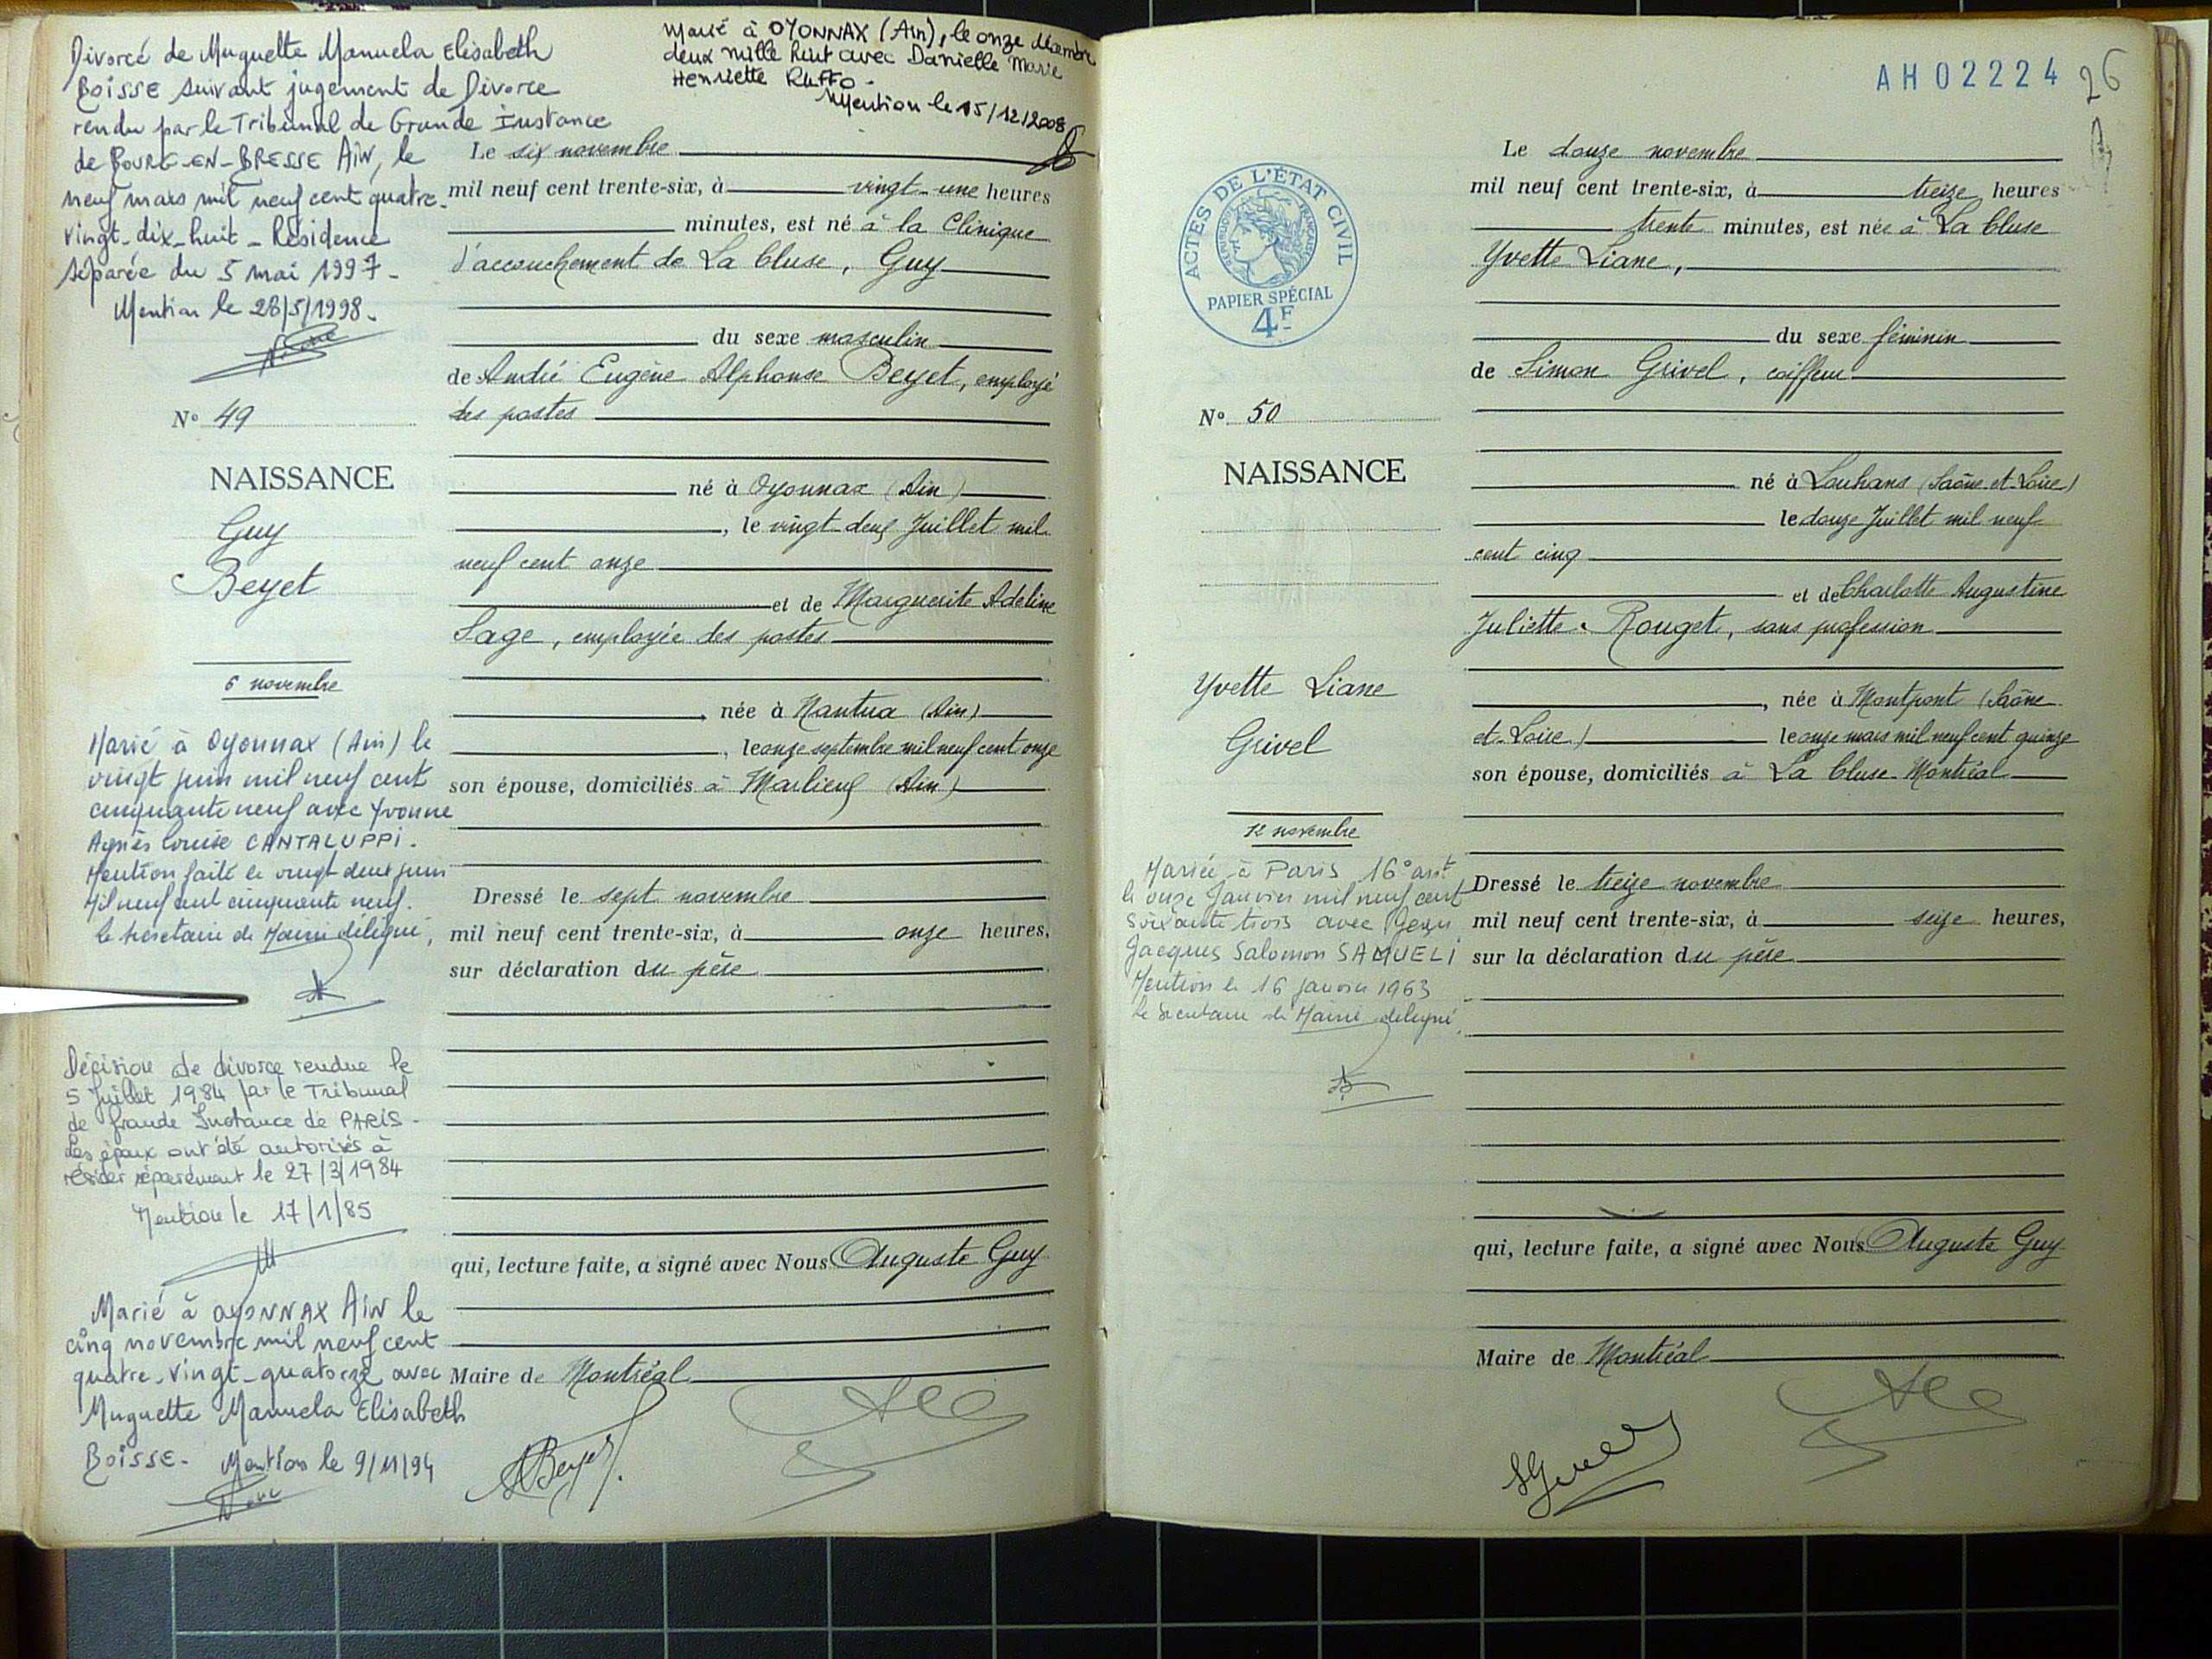 Divorcé de Muguette Manuela Elisabeth
BOISSE suivant jugement de Divorce
rendu par le Tribunal de Grande Instance
de BOURG-EN-BRESSE AIN, le
neuf mars mil neuf cent quatre-
vingt-dix-huit - Résidence
séparée du 5 mai 1997 -
Mention le 28/5/1998.
Marié à OYONNAX (Ain), le onze décembre
deux mille huit avec Danielle Marie
Henriette RUFFO -
Mention le 15/12/2008
N° 49
NAISSANCE
Guy
Beyet
6 novembre
Marié à Oyonnax (Ain) le
vingt juin mil neuf cent
cinquante neuf avec Yvonne
Agnès Louise CANTALUPPI.
Mention faite le vingt deux juin
Mil neuf cent cinquante neuf.
le secrétaire de Mairie délégué,
Décision de divorce rendue le
5 Juillet 1984 par le Tribunal
de Grande Instance de PARIS -
Les époux ont été autorisés à
résider séparément le 27/3/1984
Mention le 17/1/85
Marié à OYONNAX AIN le
cinq novembre mil neuf cent
quatre-vingt-quatorze avec
Muguette Manuela Elisabeth
BOISSE. Mention le 9/11/94
Le six novembre
mil neuf cent trente-six, à vingt-une heures
minutes, est né à la Clinique
d'accouchement de La Cluse, Guy
du sexe masculin
de André Eugène Alphonse Beyet, employé
des postes
né à Oyonnax (Ain)
, le vingt-deux Juillet mil
neuf cent onze
et de Marguerite Adeline
Sage, employée des postes
, née à Nantua (Ain)
, le onze septembre mil neuf cent onze
son épouse, domiciliés à Marlieux (Ain)
Dressé le sept novembre
mil neuf cent trente-six, à onze heures,
sur déclaration du père
qui, lecture faite, a signé avec Nous Auguste Guy
Maire de Montréal
ABeyet
AH02224 26
ACTES DE L'ÉTAT CIVIL
RÉPUBLIQUE FRANÇAISE
PAPIER SPÉCIAL
4F
N° 50
NAISSANCE
Yvette Liane
Grivel
12 novembre
Mariée à Paris 16° arrt
le onze Janvier mil neuf cent
soixante trois avec
Jacques Salomon SAMUELI
Mention le 16 janvier 1963
le Secrétaire de Mairie délégué,
Le douze novembre
mil neuf cent trente-six, à treize heures
trente minutes, est née à La Cluse
Yvette Liane,
du sexe féminin
de Simon Grivel, coiffeur
né à Louhans (Saône-et-Loire)
le douze Juillet mil neuf
cent cinq
et de Charlotte Augustine
Juliette Rouget, sans profession
, née à Montpont (Saône
et-Loire) le onze mars mil neuf cent quinze
son épouse, domiciliés à La Cluse Montréal
Dressé le treize novembre
mil neuf cent trente-six, à seize heures,
sur la déclaration du père
qui, lecture faite, a signé avec Nous Auguste Guy
Maire de Montréal
SGrivel